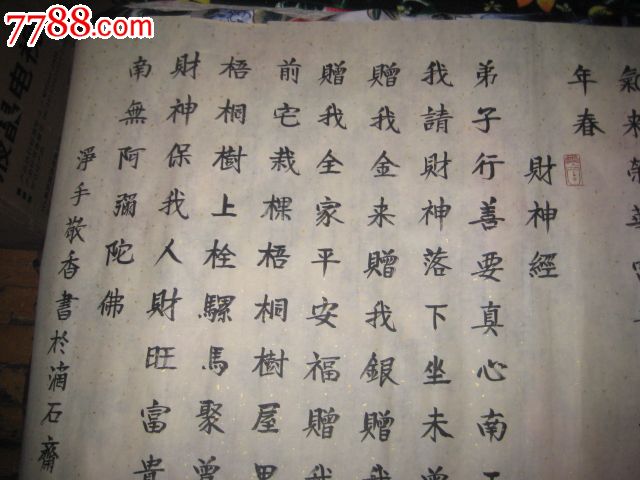 7788.com
年春
財神經
弟子行善要真心南
我請財神落下坐未
贈我金来贈我銀贈
贈我全家平安福贈我
前宅栽棵梧桐樹屋
梧桐樹上栓騾馬聚
財神保我人財旺富貴
南無阿彌陀佛
淨手敬香書於滴石齋